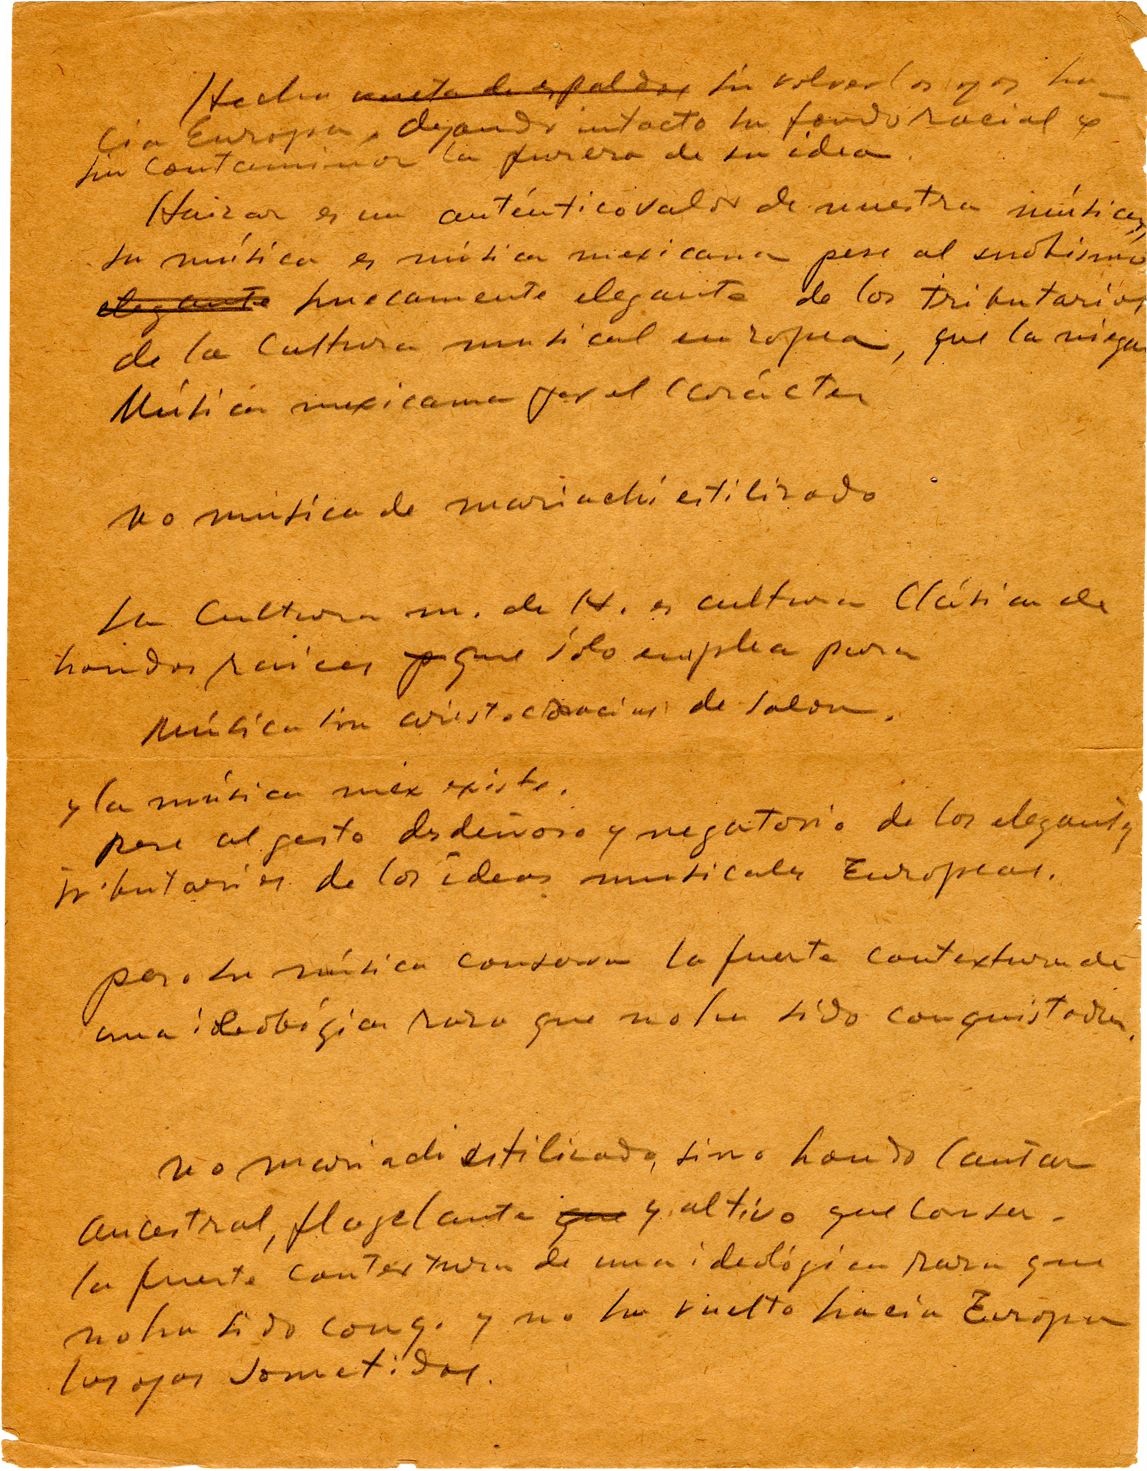 Hecha vuelta de espaldas sin volver los ojos ha-
cia Europa, dejando intacto su fondo racial y
sin contaminar la pureza de su idea.
Huizar es un auténtico valor de nuestra música,
su música es música mexicana pese al snobismo
elegante huecamente elegante de los tributarios
de la Cultura musical europea, que la niegan
Música mexicana por el carácter
no música de mariachi estilizado
La Cultura m. de H. es cultura Clásica de
hondas raíces p que sólo emplea para
Música sin aristocracias de salon.
y la música mex existe.
pese al gesto desdeñoso y negatorio de los elegantes
tributarios de las ideas musicales Europeas.
pero su música conserva la fuerte contextura de
una ideológica raza que no ha sido conquistada.
no mariachi estilizado, sino hondo cantar
ancestral, flagelante que y altivo que conser-
la fuerte contextura de una ideológica raza que
no ha sido conq. y no ha vuelto hacia Europa
los ojos sometidos.